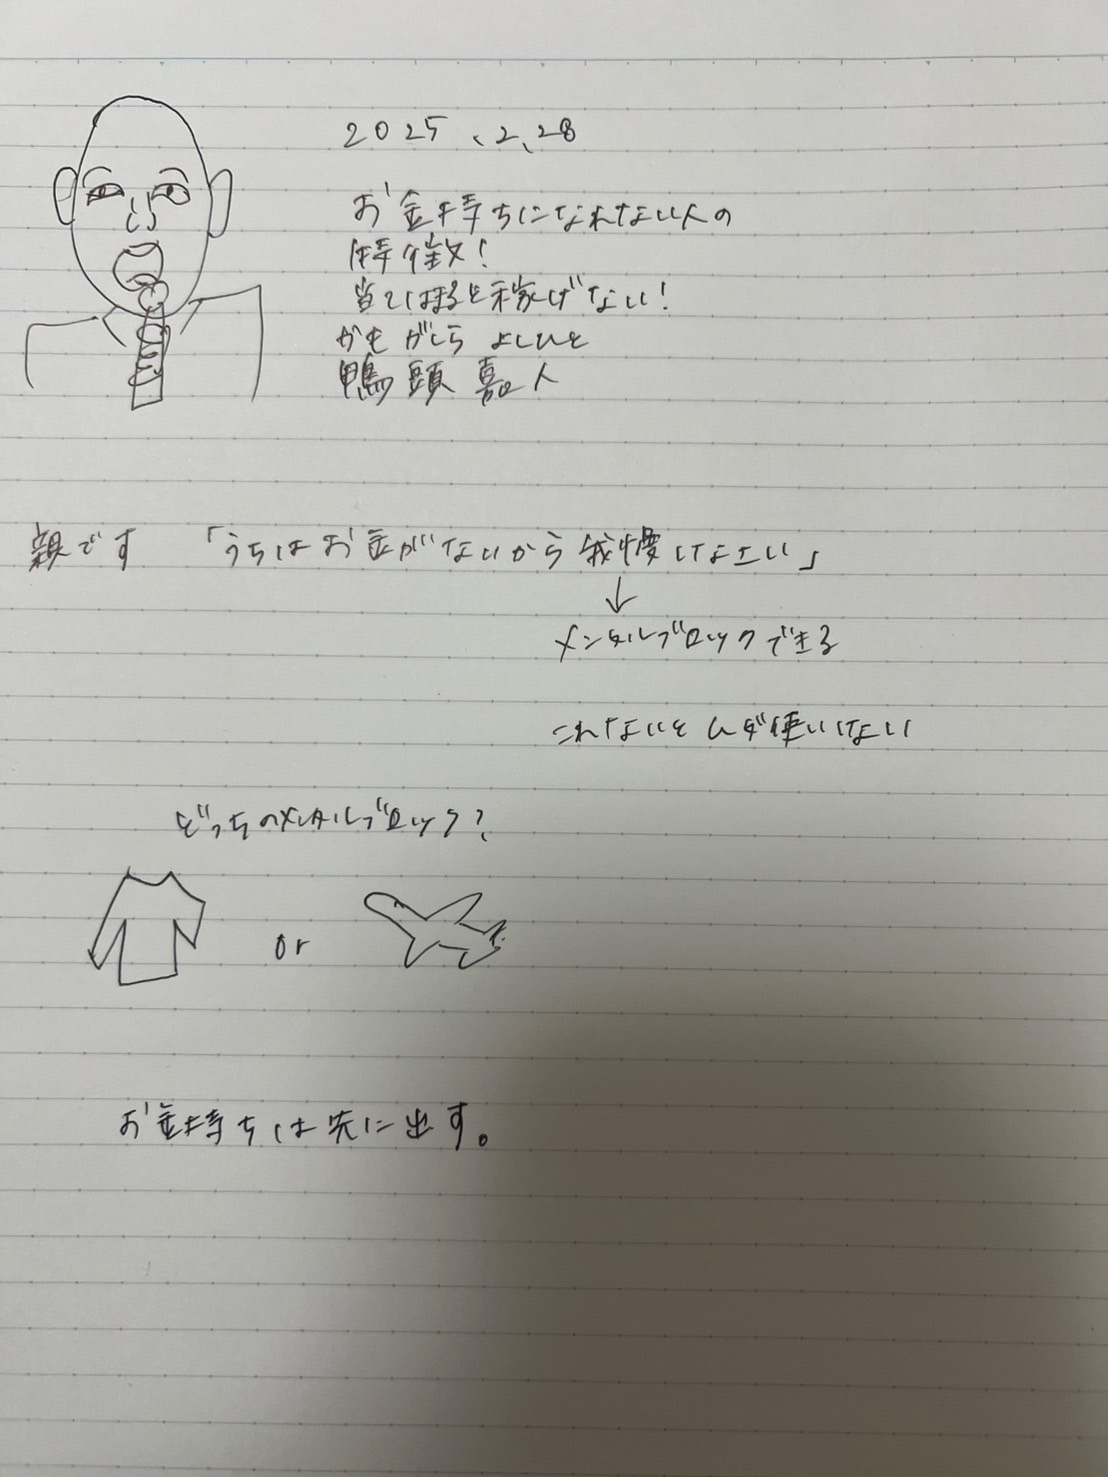 2025、2、28
お金持ちになれない人の
特徴!
当てはまると稼げない!
かも がしら よしひと
鴨頭 嘉人
親です 「うちはお金がないから我慢しなさい」
↓
メンタルブロックできる
これないとムダ使いしない
どっちのメンタルブロック?
or
お金持ちは先に出す。